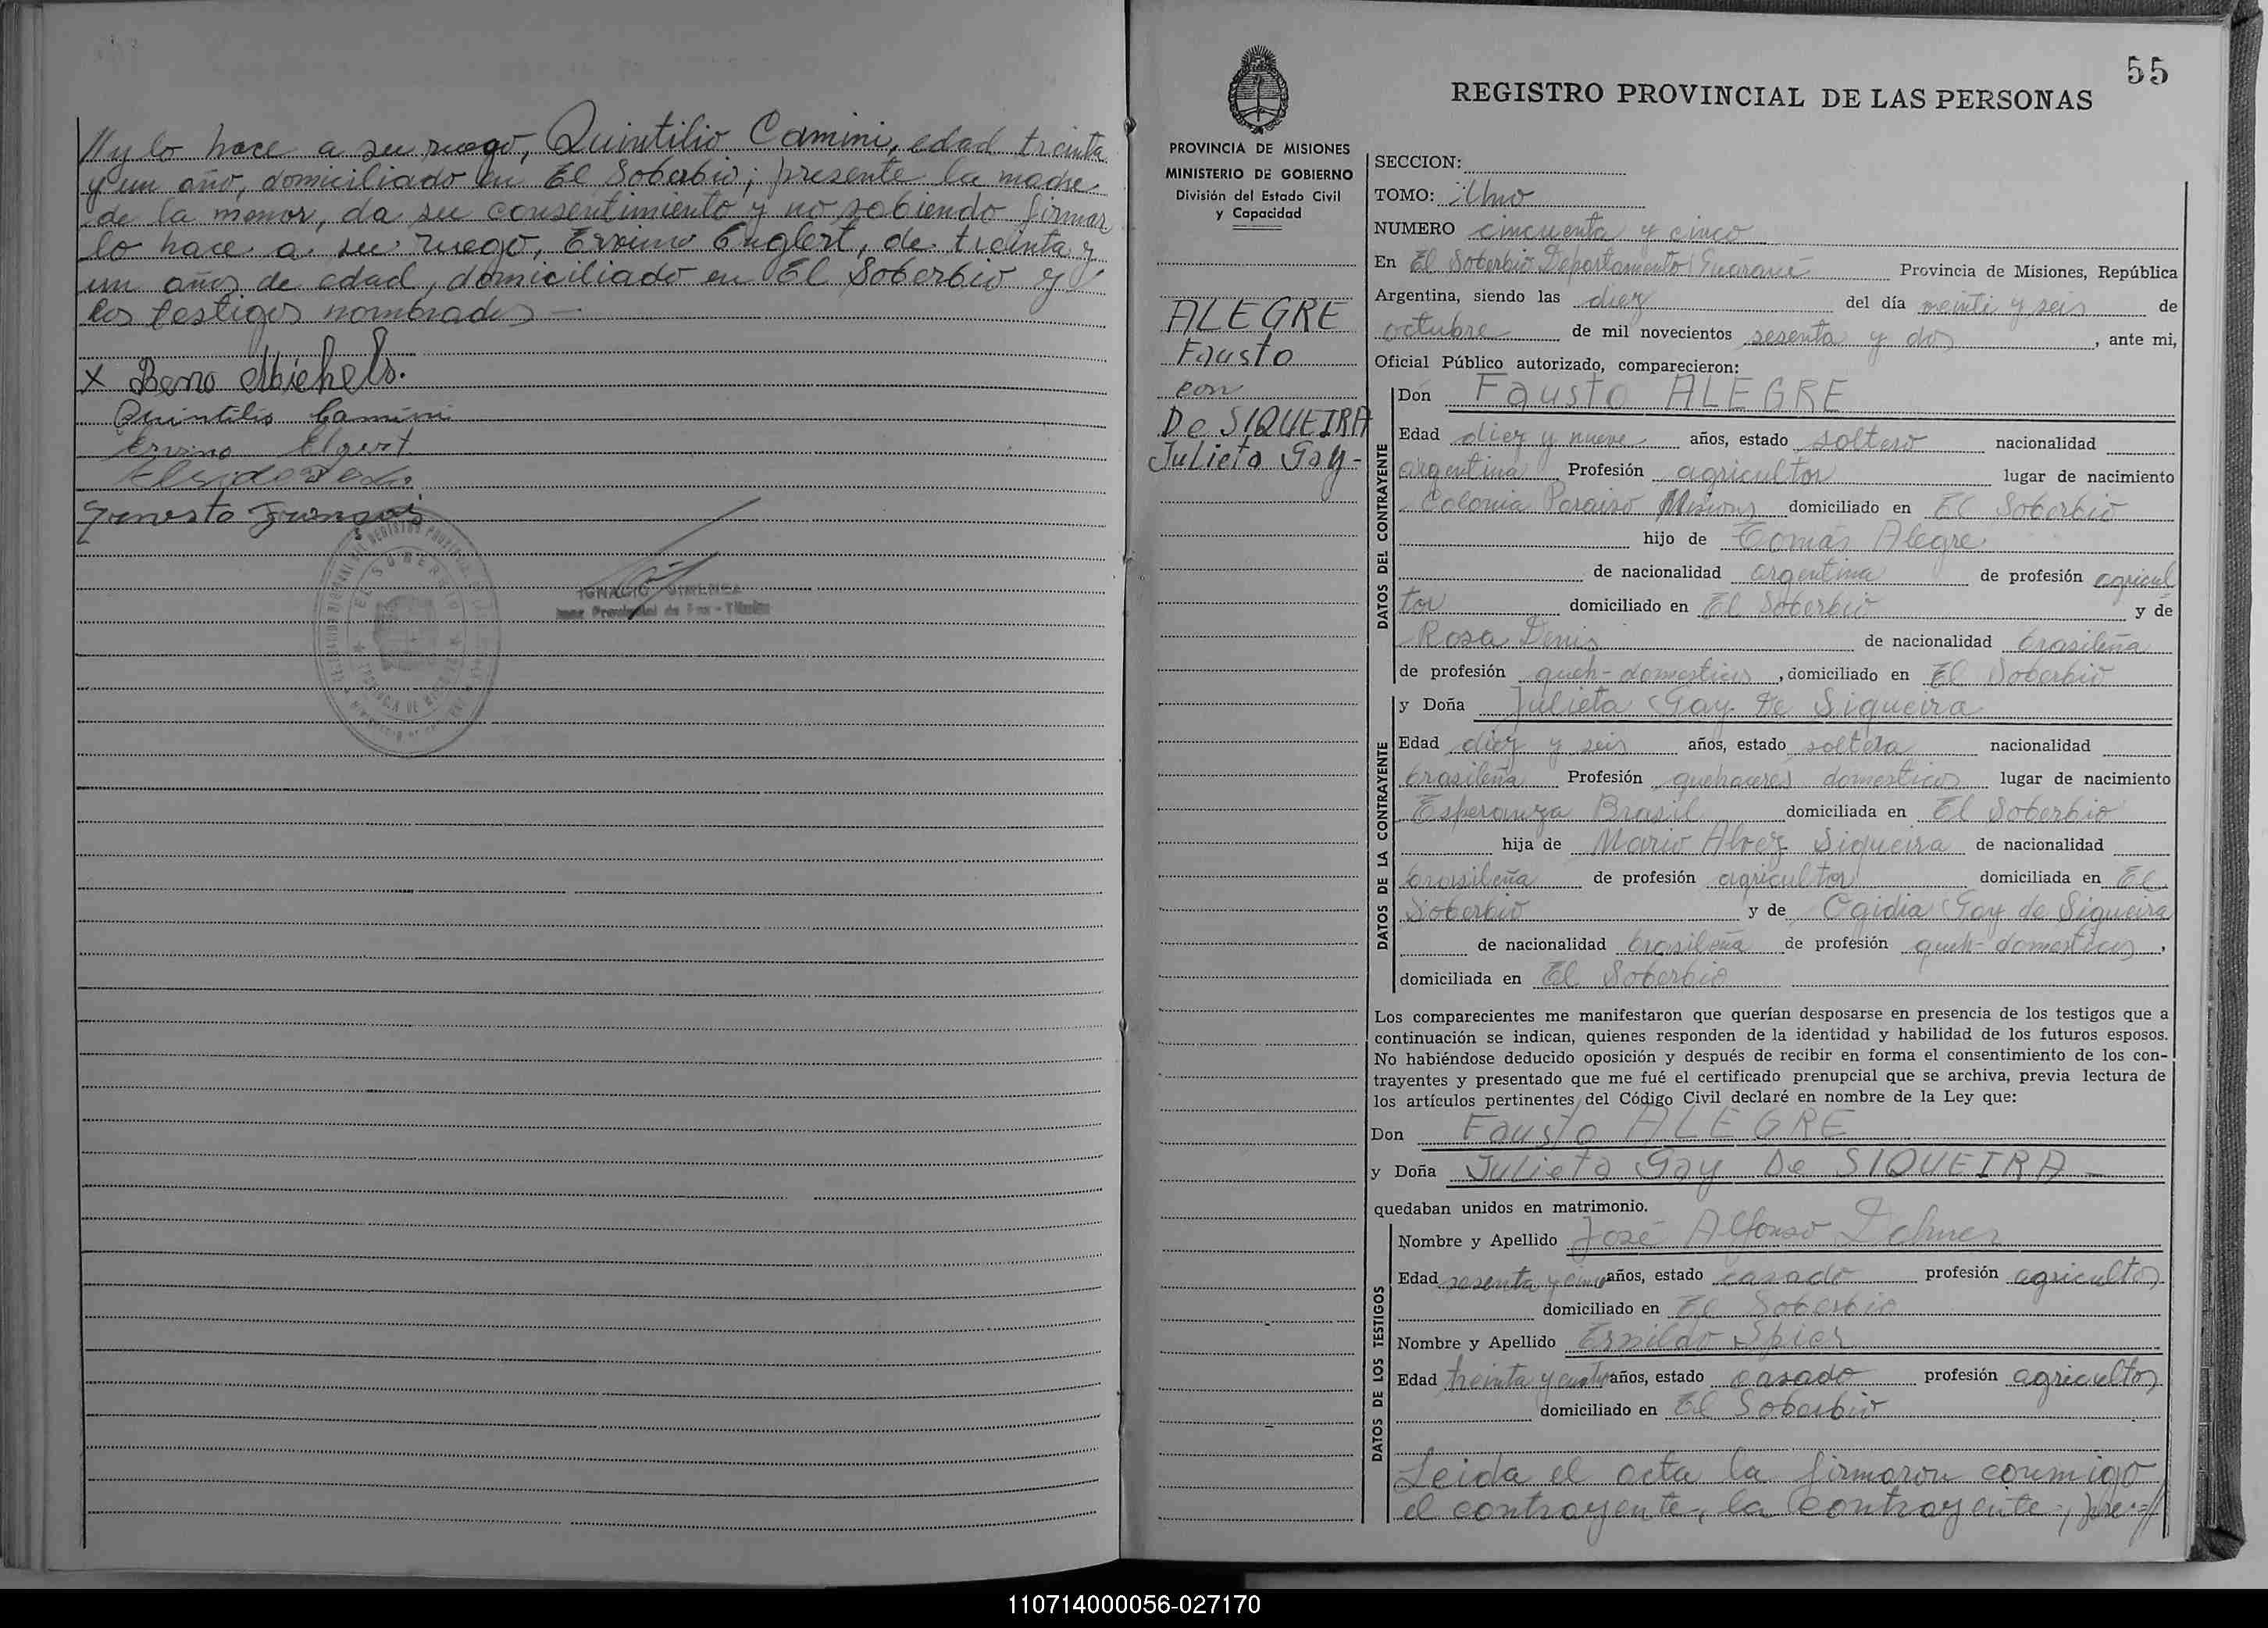 // y lo hace a su ruego, Quintilio Camini, edad treinta
y un año, domiciliado en El Soberbio; presente la madre
de la menor, da su consentimiento y no sabiendo firmar
lo hace a su ruego, Ervino Englert, de treinta y
un años de edad, domiciliado en El Soberbio y
los testigos nombrados —
x Beno Michels.
Quintilio Camini
Ervino Elgert
Ernesto François
EL SOBERBIO
IGNACIO GIMENEZ
55
REGISTRO PROVINCIAL DE LAS PERSONAS
PROVINCIA DE MISIONES
MINISTERIO DE GOBIERNO
División del Estado Civil
y Capacidad
ALEGRE
Fausto
con
De SIQUEIRA
Julieta Gay-
SECCION:
TOMO: Uno
NUMERO cincuenta y cinco
En El Soberbio Departamento Guaraní Provincia de Misiones, República
Argentina, siendo las diez del día veinti y seis de
octubre de mil novecientos sesenta y dos, ante mi,
Oficial Público autorizado, comparecieron:
DATOS DEL CONTRAYENTE
Don Fausto ALEGRE
Edad diez y nueve años, estado soltero nacionalidad
argentina Profesión agricultor lugar de nacimiento
Colonia Paraiso Misiones domiciliado en El Soberbio
hijo de Tomás Alegre
de nacionalidad argentina de profesión agricul
tor domiciliado en El Soberbio y de
Rosa Denis de nacionalidad brasileña
de profesión queh-domesticos, domiciliado en El Soberbio
DATOS DE LA CONTRAYENTE
y Doña Julieta Gay De Siqueira
Edad diez y seis años, estado soltera nacionalidad
brasileña Profesión quehaceres domesticos lugar de nacimiento
Esperanza Brasil domiciliada en El Soberbio
hija de Mario Alvez Siqueira de nacionalidad
brasileña de profesión agricultor domiciliada en El
Soberbio y de Ogidia Gay de Siqueira
de nacionalidad brasileña de profesión queh-domesticos,
domiciliada en El Soberbio
Los comparecientes me manifestaron que querían desposarse en presencia de los testigos que a
continuación se indican, quienes responden de la identidad y habilidad de los futuros esposos.
No habiéndose deducido oposición y después de recibir en forma el consentimiento de los con-
trayentes y presentado que me fué el certificado prenupcial que se archiva, previa lectura de
los artículos pertinentes del Código Civil declaré en nombre de la Ley que:
Don Fausto ALEGRE
y Doña Julieta Gay De SIQUEIRA —
quedaban unidos en matrimonio.
DATOS DE LOS TESTIGOS
Nombre y Apellido José Alfonso
Edad sesenta y cinco años, estado casado profesión agricultor
domiciliado en El Soberbio
Nombre y Apellido Ernildo Spier
Edad treinta y cuatro años, estado casado profesión agricultor
domiciliado en El Soberbio
Leida el acta la firmaron conmigo
el contrayente, la contrayente, pre=//
110714000056-027170